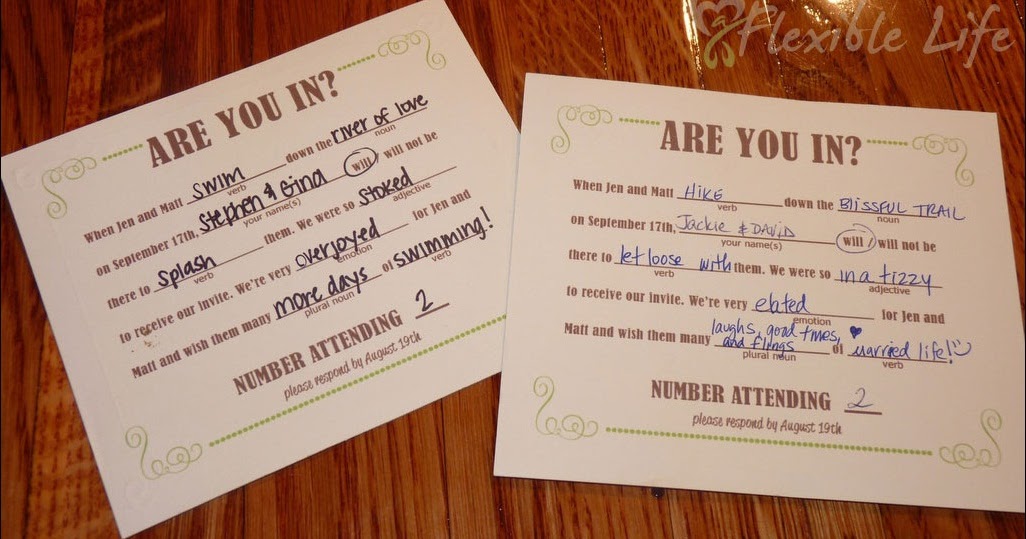 a Flexible Life
ARE YOU IN?
When Jen and Matt SWIM down the river of love
verb noun
on September 17th, Stephen & Gina will / will not be
your name(s)
there to Splash them. We were so Stoked
verb adjective
to receive our invite. We're very overjoyed for Jen and
emotion
Matt and wish them many more days of swimming!
plural noun verb
NUMBER ATTENDING 2
please respond by August 19th
ARE YOU IN?
When Jen and Matt HIKE down the BLISSFUL TRAIL
verb noun
on September 17th, Jackie & DAVID will / will not be
your name(s)
there to let loose with them. We were so in a tizzy
verb adjective
to receive our invite. We're very elated for Jen and
emotion
laughs, good times, ♥
Matt and wish them many and flings of married life!
plural noun verb
NUMBER ATTENDING 2
please respond by August 19th